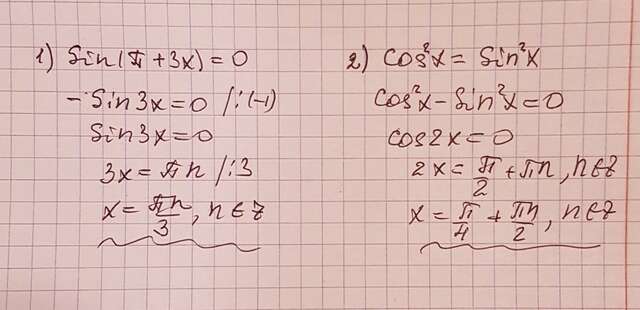 1) Sin(π + 3x) = 0
- Sin3x = 0 /:(-1)
Sin3x = 0
3x = πn /:3
x = πn/3, n ∈ Z
2) Cos²x = Sin²x
Cos²x - Sin²x = 0
cos2x = 0
2x = π/2 + πn, n ∈ Z
x = π/4 + πn/2, n ∈ Z